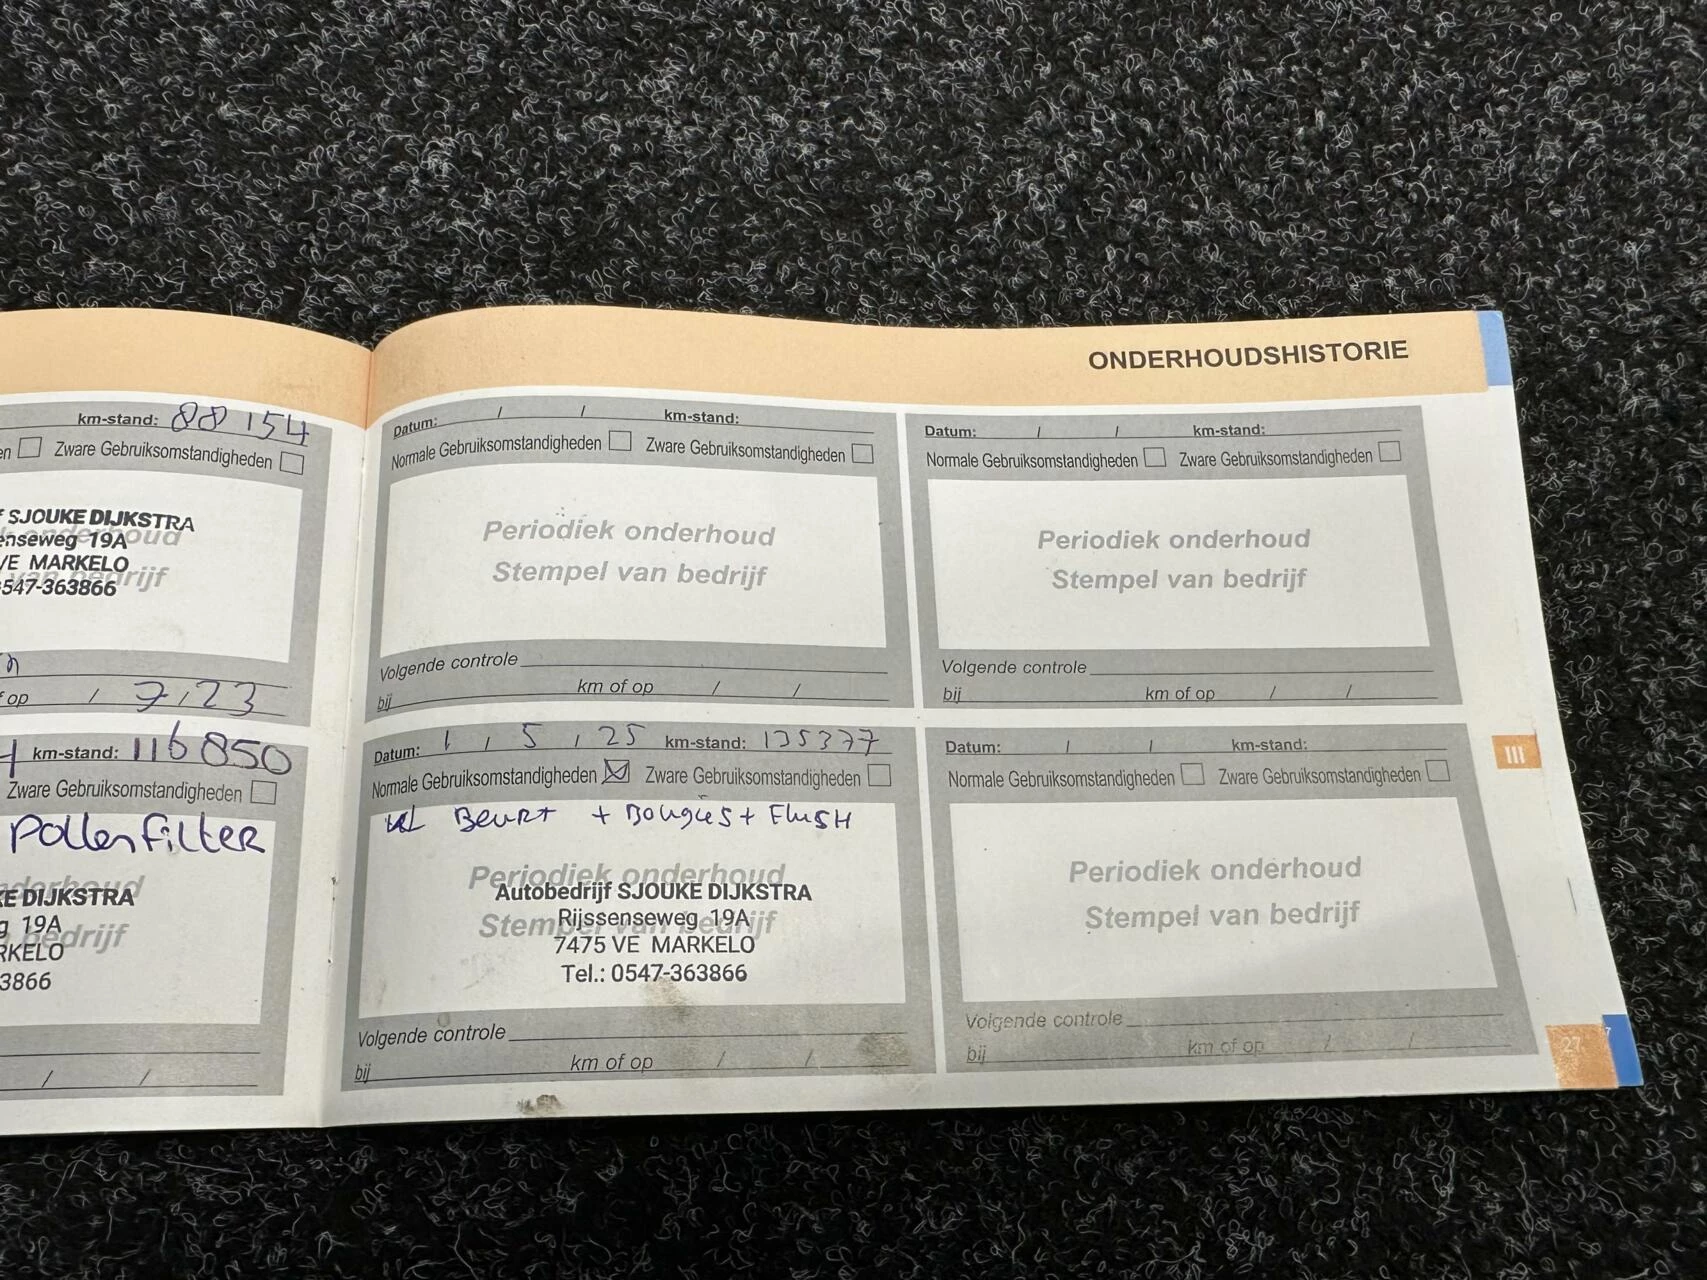 ONDERHOUDSHISTORIE
km-stand: 88 154
en Zware Gebruiksomstandigheden
f SJOUKE DIJKSTRA
enseweg 19A
VE MARKELO
547-363866
op / 7,23
km-stand: 116850
Zware Gebruiksomstandigheden
Pollenfilter
KE DIJKSTRA
g 19A
RKELO
3866
/ /
Datum: / / km-stand:
Normale Gebruiksomstandigheden Zware Gebruiksomstandigheden
Periodiek onderhoud
Stempel van bedrijf
Volgende controle
bij km of op / /
Datum: / / km-stand:
Normale Gebruiksomstandigheden Zware Gebruiksomstandigheden
Periodiek onderhoud
Stempel van bedrijf
Volgende controle
bij km of op / /
Datum: 1 / 5 / 25 km-stand: 135377
Normale Gebruiksomstandigheden Zware Gebruiksomstandigheden
Beurt + Bougies + Flush
Periodiek onderhoud
Autobedrijf SJOUKE DIJKSTRA
Rijssenseweg 19A
Stempel van bedrijf
7475 VE MARKELO
Tel.: 0547-363866
Volgende controle
bij km of op / /
Datum: / / km-stand:
Normale Gebruiksomstandigheden Zware Gebruiksomstandigheden
Periodiek onderhoud
Stempel van bedrijf
Volgende controle
bij km of op / /
III
27